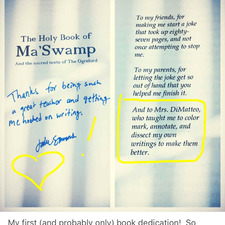 The Holy Book of
Ma'Swamp
And the sacred texts of The Ogrelord
Thanks for being such
a great teacher and getting
me hooked on writing!
To my friends, for
making me start a joke
that took up eighty-
seven pages, and not
once attempting to stop
me.
To my parents, for
letting the joke get so
out of hand that you
helped me finish it.
And to Mrs. DiMatteo,
who taught me to color
mark, annotate, and
dissect my own
writings to make them
better.
My first (and probably only) book dedication! So